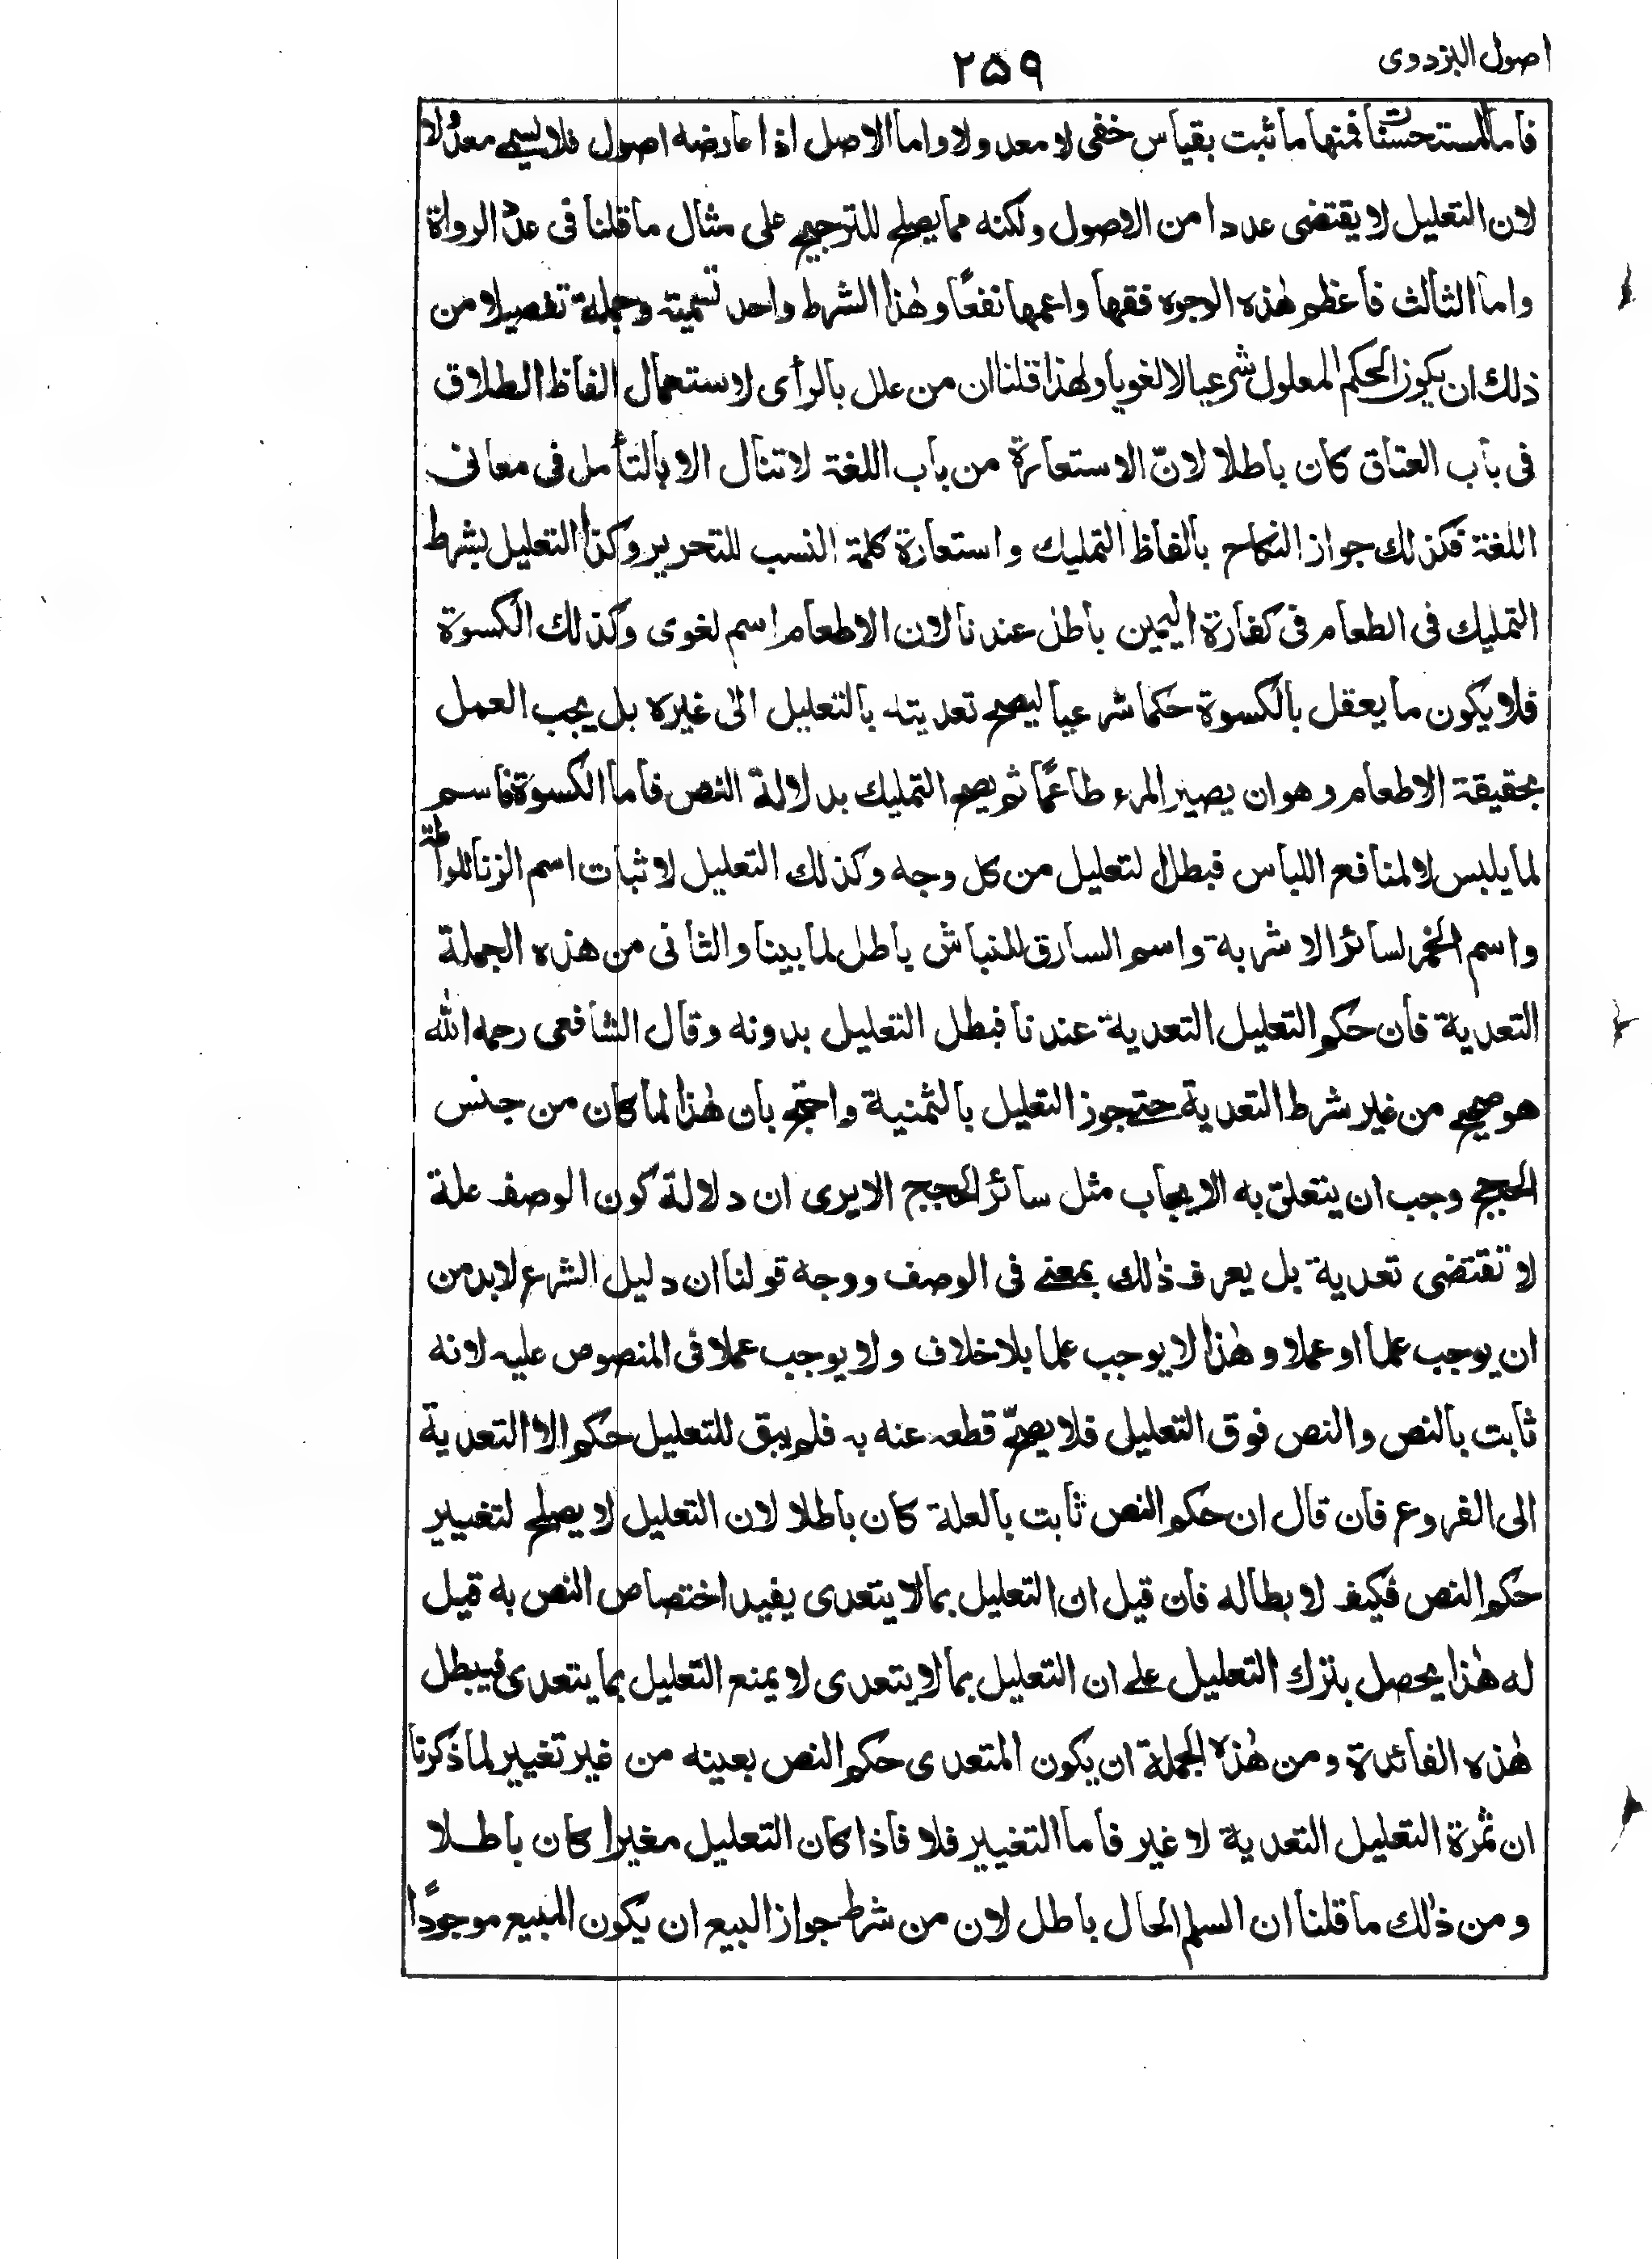 اصول البزدوى
۲۵۹
فاما المستحسنات فمنها ما ثبت بقياس خفى لا معدولا واما الاصل اذا عارضه اصول فلا يسمى معدولا
لان التعليل لا يقتضى عددا من الاصول ولكنه مما يصلح للترجيح على مثال ما قلنا فى عدد الرواة
واما الثالث فاعظم هٰذه الوجوه فقها واعمها نفعًا وهٰذا الشرط واحد تسمية وجملة تفصيلا من
ذلك ان يكون الحكم المعلول شرعيا لا لغويا ولهذا قلنا ان من علل بالرأى لاستعمال الفاظ الطلاق
فى باب العتاق كان باطلا لانّ الاستعارة من باب اللغة لا تنال الا بالتأمل فى معانى
اللغة فكذلك جواز النكاح بالفاظ التمليك واستعارة كلمة النسب للتحرير وكذا التعليل بشرط
التمليك فى الطعام فى كفارة اليمين باطل عندنا لان الاطعام اسم لغوى وكذلك الكسوة
فلا يكون ما يعقل بالكسوة حكما شرعيا ليصح تعديته بالتعليل الى غيره بل يجب العمل
بحقيقة الاطعام وهو ان يصير المرء طاعمًا ثم يصح التمليك بدلالة النص فاما الكسوة فاسم
لما يلبس لا لمنافع اللباس فبطل التعليل من كل وجه وكذلك التعليل لاثبات اسم الزنا للواطة
واسم الخمر لسائر الاشربة واسم السارق للنباش باطل لما بينا والثانى من هذه الجملة
التعدية فان حكم التعليل التعدية عندنا فبطل التعليل بدونه وقال الشافعى رحمه الله
هو صحيح من غير شرط التعدية حتى جوز التعليل بالثمنية واحتج بان هٰذا لما كان من جنس
الحجج وجب ان يتعلق به الايجاب مثل سائر الحجج الا يرى ان دلالة كون الوصف علة
لا تقتضى تعدية بل يعرف ذٰلك بمعنى فى الوصف ووجه قولنا ان دليل الشرع لابد من
ان يوجب علما او عملا وهٰذا لا يوجب علما بلا خلاف ولا يوجب عملا فى المنصوص عليه لانه
ثابت بالنص والنص فوق التعليل فلا يصحّ قطعه عنه به فلم يبق للتعليل حكم الا التعدية
الى الفروع فان قال ان حكم النص ثابت بالعلة كان باطلا لان التعليل لا يصلح لتغيير
حكم النص فكيف لابطاله فان قيل ان التعليل بما لا يتعدى يفيد اختصاص النص به قيل
له هٰذا يحصل بترك التعليل على ان التعليل بما لا يتعدى لا يمنع التعليل بما يتعدى فيبطل
هٰذه الفائدة ومن هٰذه الجملة ان يكون المتعدى حكم النص بعينه من غير تغيير لما ذكرنا
ان ثمرة التعليل التعدية لا غير فاما التغيير فلا فاذا كان التعليل مغيرا كان باطلا
ومن ذٰلك ما قلنا ان السلم الحال باطل لان من شرط جواز البيع ان يكون المبيع موجودًا